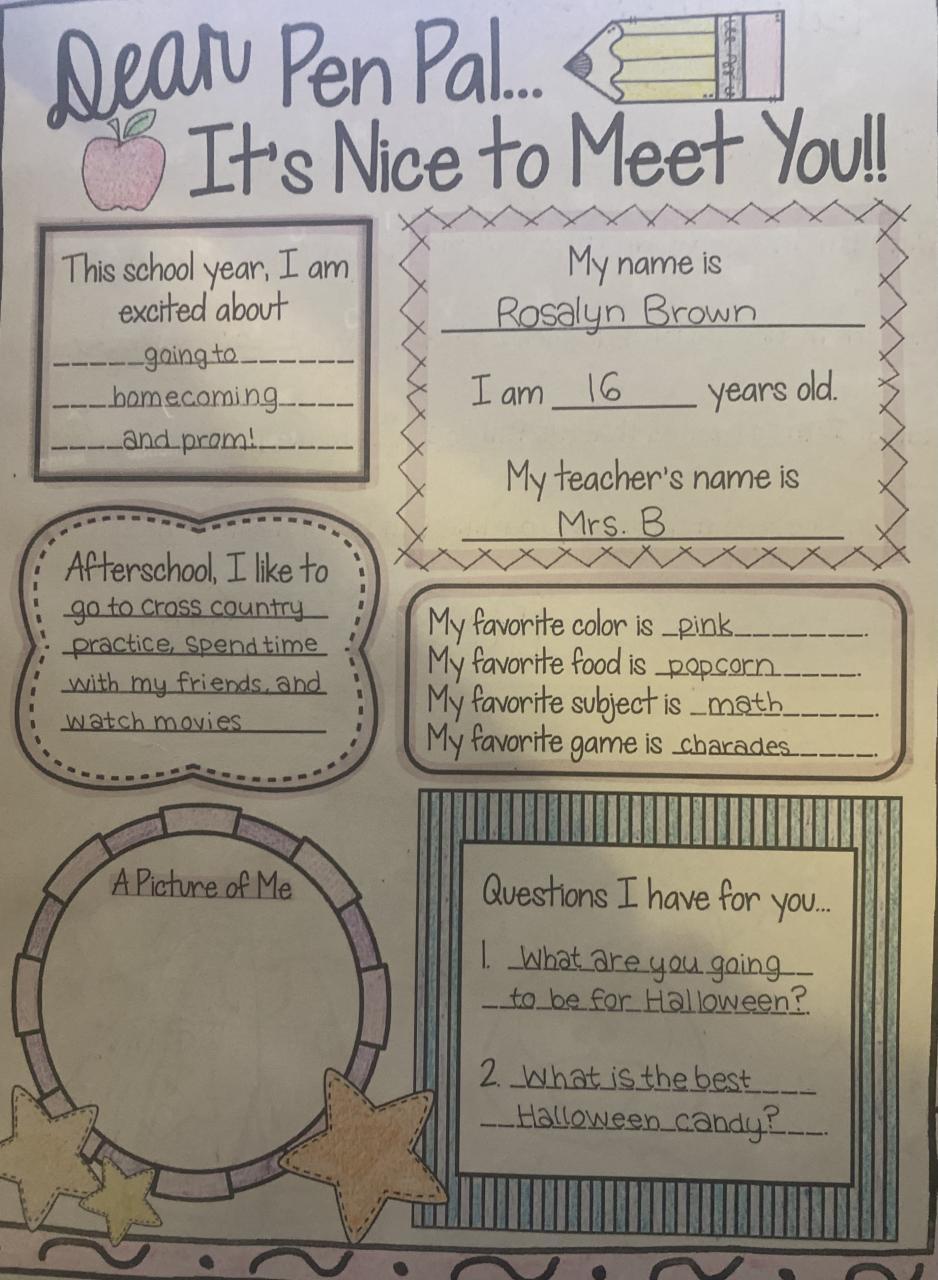 Dear Pen Pal...
It's Nice to Meet You!!
This school year, I am
excited about
going to
homecoming
and prom!
My name is
Rosalyn Brown
I am 16 years old.
My teacher's name is
Mrs. B
Afterschool, I like to
go to cross country
practice, spend time
with my friends, and
watch movies
My favorite color is pink.
My favorite food is popcorn.
My favorite subject is math.
My favorite game is charades.
A Picture of Me
Questions I have for you...
1. What are you going
to be for Halloween?
2. What is the best
Halloween candy?